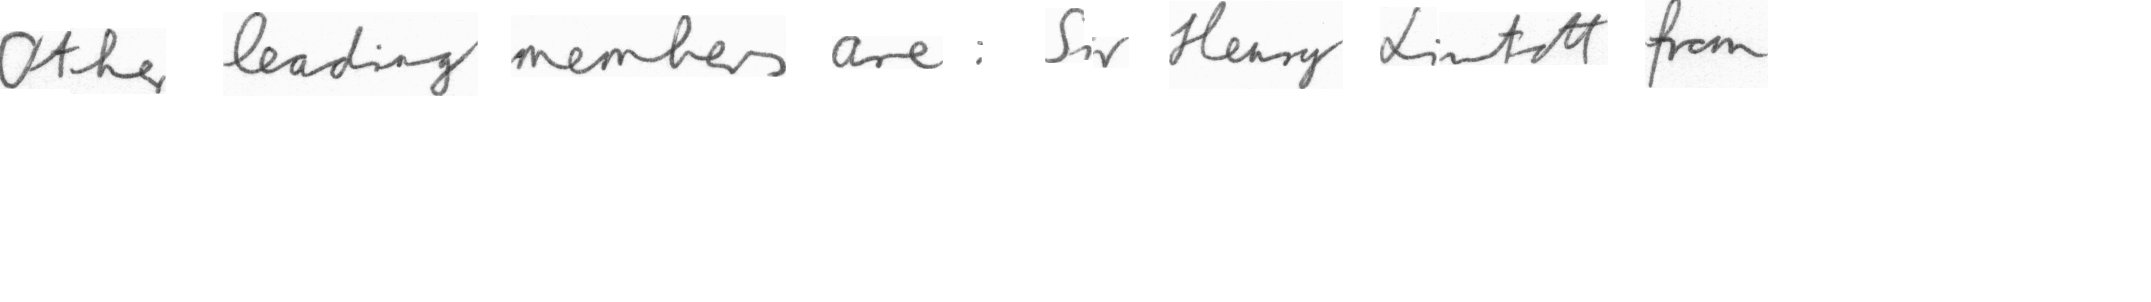 Other leading members are : Sir Henry Lintott from